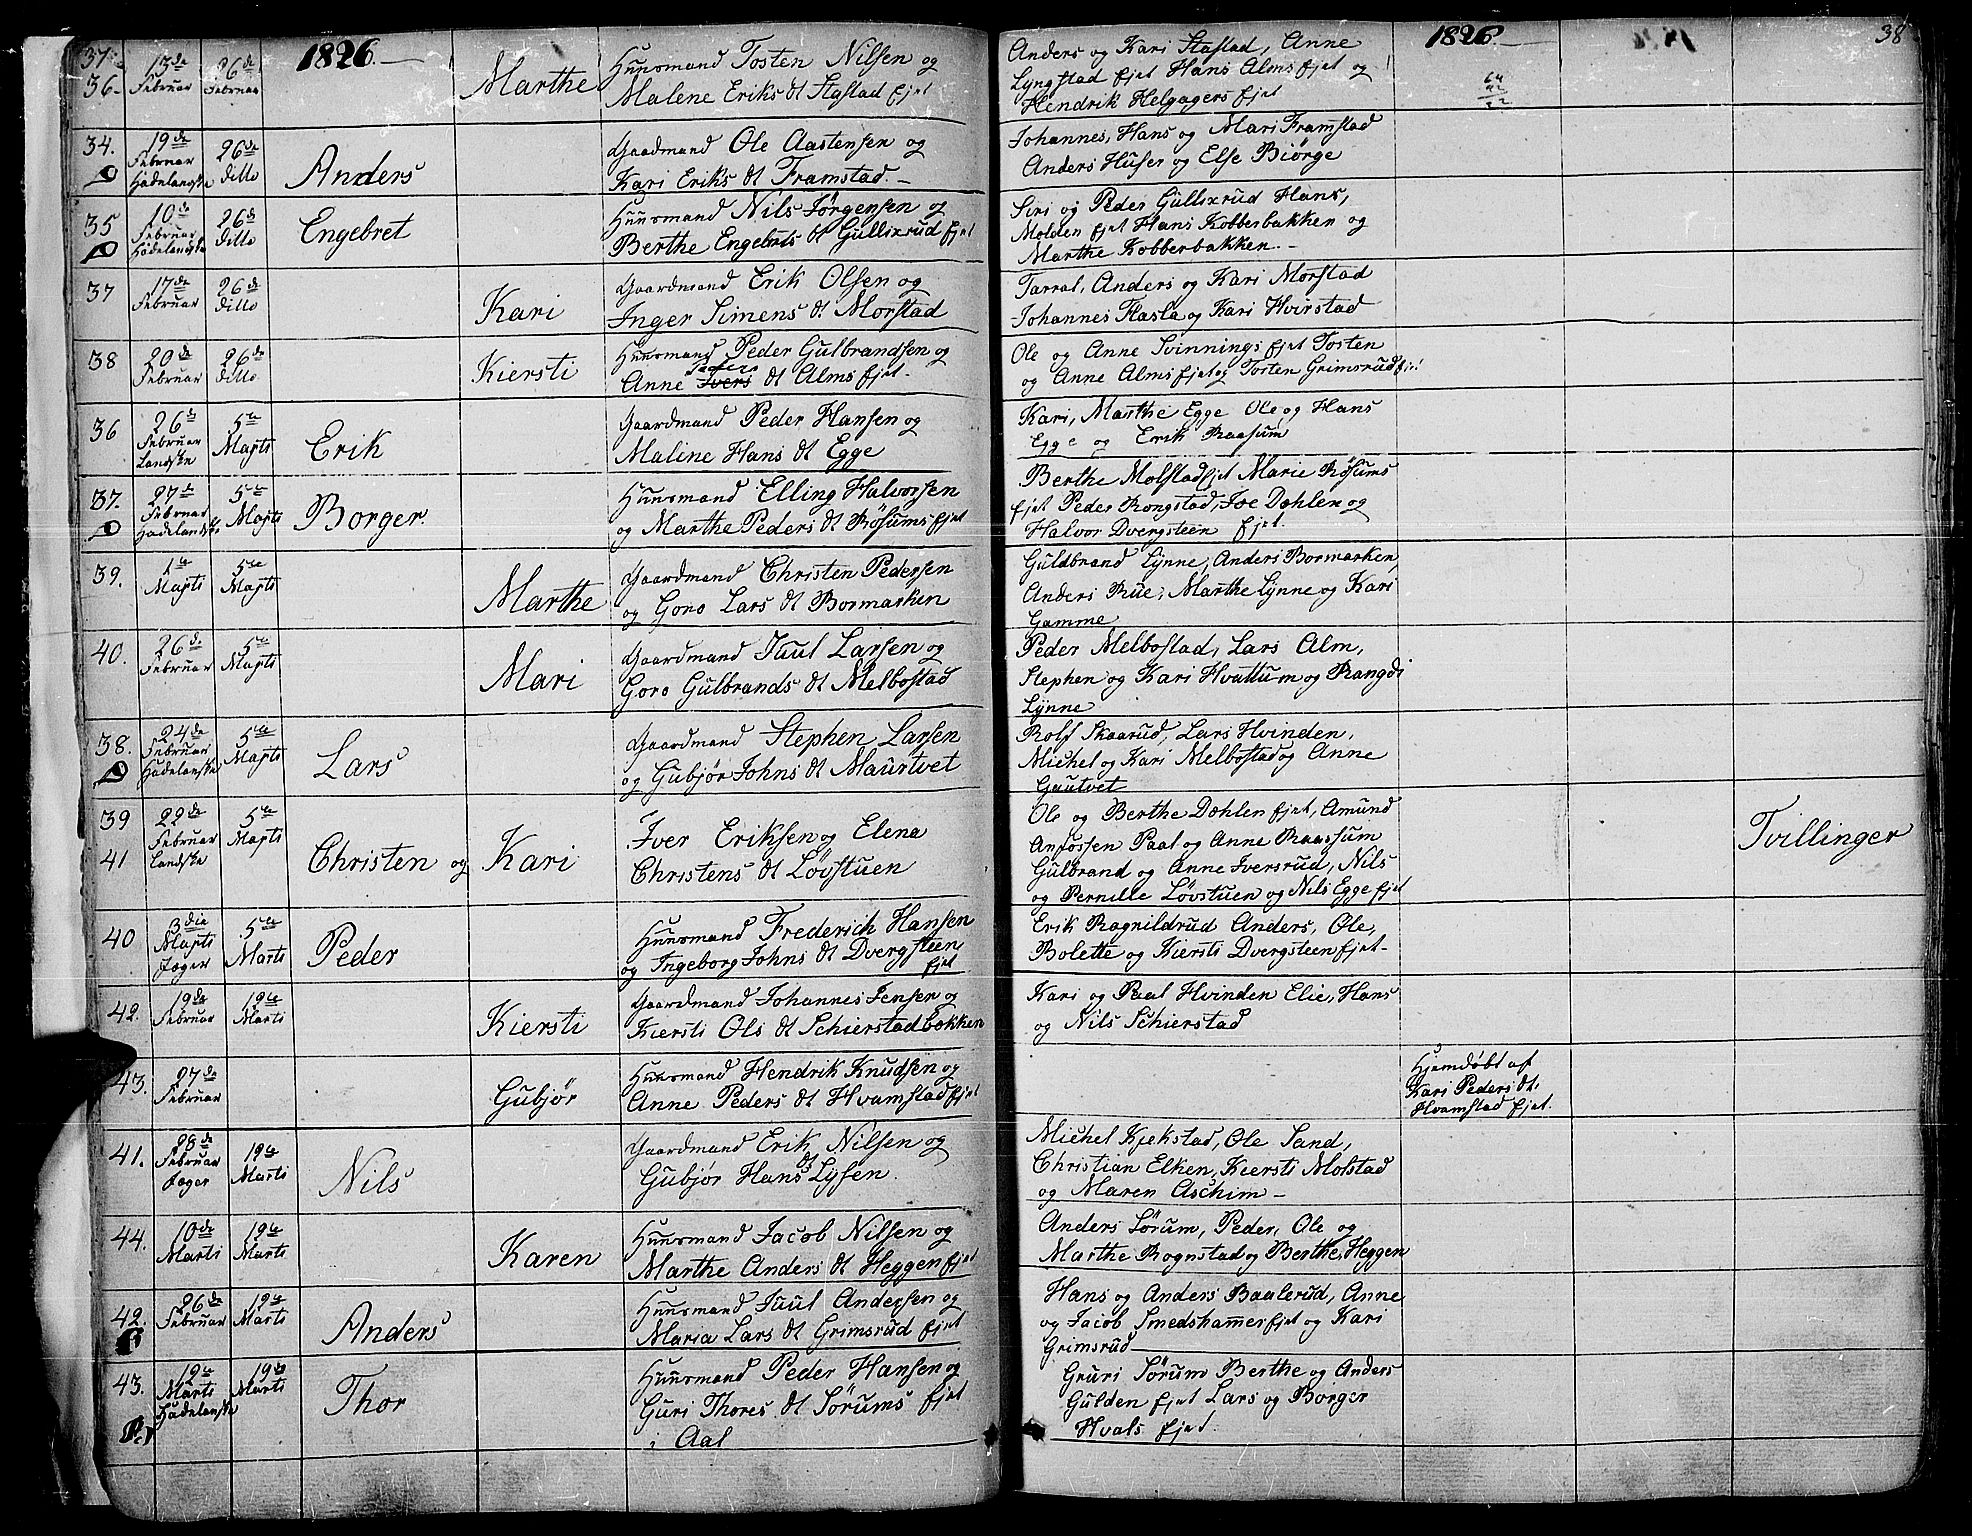 37.
1826
38
36.
13de Februar
26de Februar
Marthe
Huusmand Tosten Nilsen og
Malene Eriks dt Stastad Ejet
Anders og Kari Stastad, Anne
Lyngstad Ejet Hans Alms Ejet og
Hendrik Helgagers Ejet
1826
64
34.
19de
Februar
Hadelandske
26de
ditto
Anders
Gaardmand Ole Aastensen og
Kari Eriks dt Framstad.
Johannes, Hans og Mari Framstad
Anders Huser og Else Biørge
35
10de
Februar
Hadelandske
26de
ditto
Engebret
Huusmand Nils Jørgensen og
Berthe Engebrets dt Gullixrud Ejet
Siri og Peder Gullixrud Hans,
Molden Ejet Hans Kobberbakken og
Marthe Kobberbakken.
37
17de
Februar
26de
ditto
Kari
Gaardmand Erik Olsen og
Inger Simens dt Morstad
Tarral, Anders og Kari Morstad
Johannes Flasla og Kari Hvirstad
38
20de
Februar
26de
ditto
Kiersti
Huusmand Peder Gulbrandsen og
Anne Ivers dt Alms Ejet
Ole og Anne Svinnings Ejet Tosten
og Anne Alms Ejet og Tosten Grimsrud Ejet
36
26de
Februar
Landske
5te
Marti
Erik
Gaardmand Peder Hansen og
Maline Hans dt Egge
Kari, Marthe Egge Ole og Hans
Egge og Erik Raasum
37.
27de
Februar
Hadelandske
5te
Marti
Borger.
Huusmand Elling Halvorsen
og Marthe Peders dt Røsums Ejet
Berthe Molstad Ejet Marie Røsums
Ejet Peder Rongstad, Joe Dæhlen og
Halvor Dvergsteen Ejet.
39.
1te
Marti
5te
Marti
Marthe
Gaardmand Christen Pedersen
og Goro Lars dt Bormarken
Guldbrand Lynne, Anders Bormarken,
Anders Rue, Marthe Lynne og Kari
Gamme
40.
26de
Februar
5te
Marti
Mari
Gaardmand Juul Larsen og
Goro Gulbrands dt Melbostad
Peder Melbostad, Lars Alm,
Stephen og Kari Hvattum og Rangdi
Lynne
38.
24de
Februar
Hadelanske
5te
Marti
Lars
Gaardmand Stephen Larsen
og Gubjør Johns dt Maurtvet
Rolf Skaarud, Lars Hvinden,
Michel og Kari Melbostad og Anne
Gautvet
39
41
22de
Februar
Landske
5te
Marti
Christen og
Kari
Iver Eriksen og Elena
Christens dt Løvstuen
Ole og Berthe Dæhlen Ejet, Amund
Amfossen Paal og Anne Raassum
Gulbrand og Anne Iversrud, Nils
og Pernille Løvstuen og Nils Egge Ejet
Tvillinger
40
3die
Marti
Jæger
5te
Marti
Peder
Huusmand Frederich Hansen
og Ingeborg Johns dt Dvergsteen
Ejet
Erik Ragnildrud Anders, Ole,
Bolette og Kiersti Dvergsteen Ejet
42.
19de
Februar
12te
Marti
Kiersti
Gaardmand Johannes Jensen og
Kiersti Ols dt Schierstadbakken
Kari og Paal Hvinden Elie, Hans
og Nils Schierstad
43.
27de
Februar
Gubjør
Huusmand Hendrik Knudsen og
Anne Peders dt Hvamstad Ejet
Hjemdøbt af
Kari Peders dt.
Hvamstad Ejet.
41.
28de
Februar
Jæger
19te
Marti
Nils
Gaardmand Erik Nilsen og
Gubjør Hans dt Lysen.
Michel Kjekstad, Ole Sand,
Christian Elken, Kiersti Molstad
og Maren Aschim
44.
10de
Marti
19te
Marti
Karen
Huusmand Jacob Nilsen og
Marthe Anders dt Heggen Ejet
Anders Sørum, Peder, Ole og
Marthe Rognstad og Berthe Heggen
42.
26de
Februar
19te
Marti
Anders
Huusmand Juul Andersen og
Maria Lars dt Grimsrud Ejet
Hans og Anders Baalerud, Anne
og Jacob Smedshammer Ejet og Kari
Grimsrud
43.
12te
Marti
Hadelanske
19de
Marti
Thor
Huusmand Peder Hansen og
Guri Thores dt Sørums Ejet
i Aal
Gruri Sørum Berthe og Anders
Gulden Ejet Lars og Borger
Hvals Ejet.